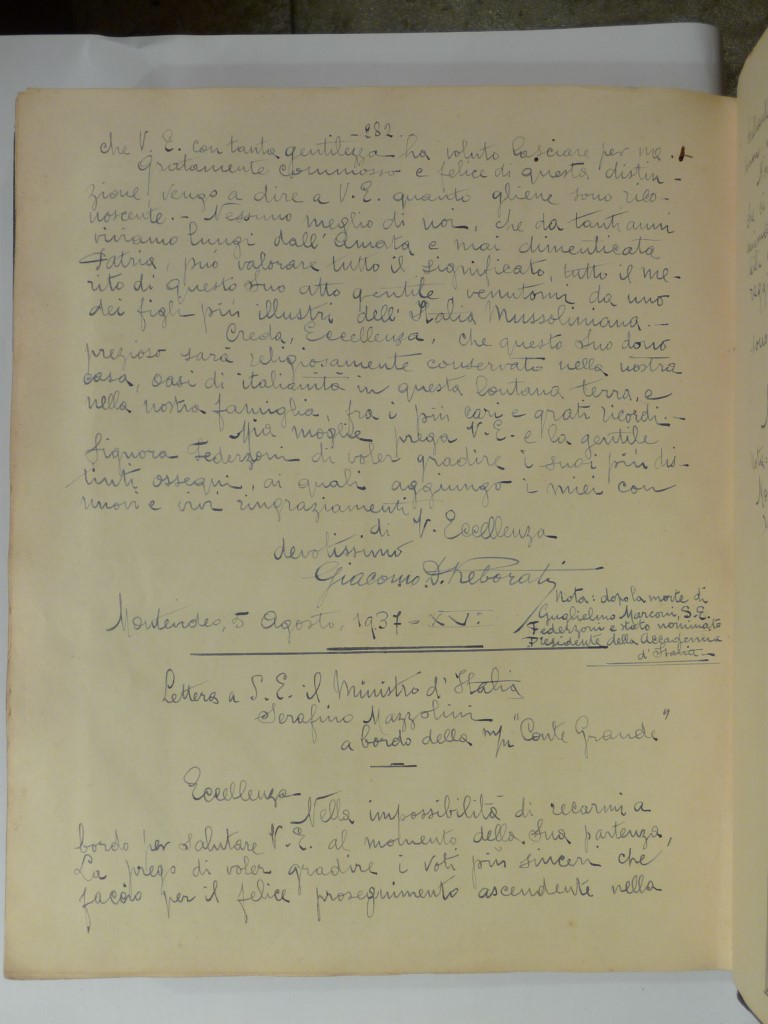 - 282 -
che V. E. con tanta gentilezza ha voluto lasciare per me. +
Gratamente commosso e felice di questa distin-
zione, vengo a dire a V. E. quanto gliene sono rico-
noscente. - Nessuno meglio di noi, che da tanti anni
viviamo lungi dall'amata e mai dimenticata
Patria, può valorare tutto il significato, tutto il me-
rito di questo suo atto gentile, venutomi da uno
dei figli più illustri dell'Italia Mussoliniana. -
Creda, Eccellenza, che questo Suo dono
prezioso sarà religiosamente conservato nella nostra
casa, oasi di italianità in questa lontana terra, e
nella nostra famiglia, fra i più cari e grati ricordi. -
Mia moglie prega V. E. e la gentile
Signora Federzoni di voler gradire i suoi più dis-
tinti ossequi, ai quali aggiungo i miei con
nuovi e vivi ringraziamenti
di V. Eccellenza
devotissimo
Giacomo D. Reborati
Montevideo, 5 Agosto, 1937 - XV:
Nota: dopo la morte di
Guglielmo Marconi, S. E.
Federzoni è stato nominato
Presidente della Accademia
d'Italia -
Lettera a S. E. il Ministro d'Italia
Serafino Mazzolini
a bordo della m/n "Conte Grande"
Eccellenza
Nella impossibilità di recarmi a
bordo per salutare V. E. al momento della Sua partenza,
La prego di voler gradire i voti più sinceri che
faccio per il felice proseguimento ascendente nella